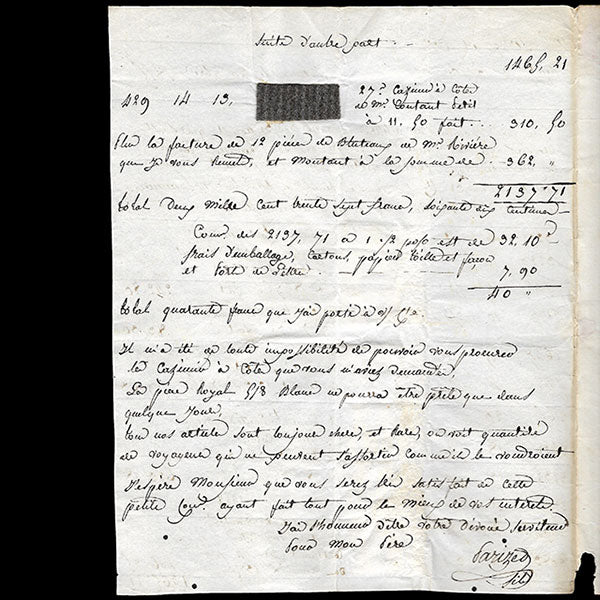 Suite d'autre part
1465, 21
27.º Casimir à Côte
429 14 13, de Mr Coutant Petit
à 11. 50 fait... 310, 50
Plus la facture de 12 pièces de Bluteaux de Mr Rivière
que Je vous remets, et montant à la somme de.. 362, "
2137 71
total deux mille Cent trente Sept francs, Soixante dix Centimes
Com. des 2137, 71 à 1. 1/2 po/o est de 32. 10
frais d'emballage, Cartons, papier toille et façon
et Port de Lettre. 7. 90
40 "
total quarante francs que J'ai porté à
Il m'a été de toute impossibilité de pouvoir vous procurer
le Casimir à Côte que vous m'aviez demander
La pièce Royal 5/8 Blanc ne pourra être prête que dans
quelque Jour,
tous nos article sont toujours chere, et Rare, on voit quantité
de voyageur qui ne peuvent s'assortir comme ils le voudroient
J'espère Monsieur que vous serez satisfait de cette
petite Com. ayant fait tout pour le Mieux de vos interets.
J'ai l'honneur d'être votre Dévoué Serviteur
Pour Mon Père
Parizet
fils